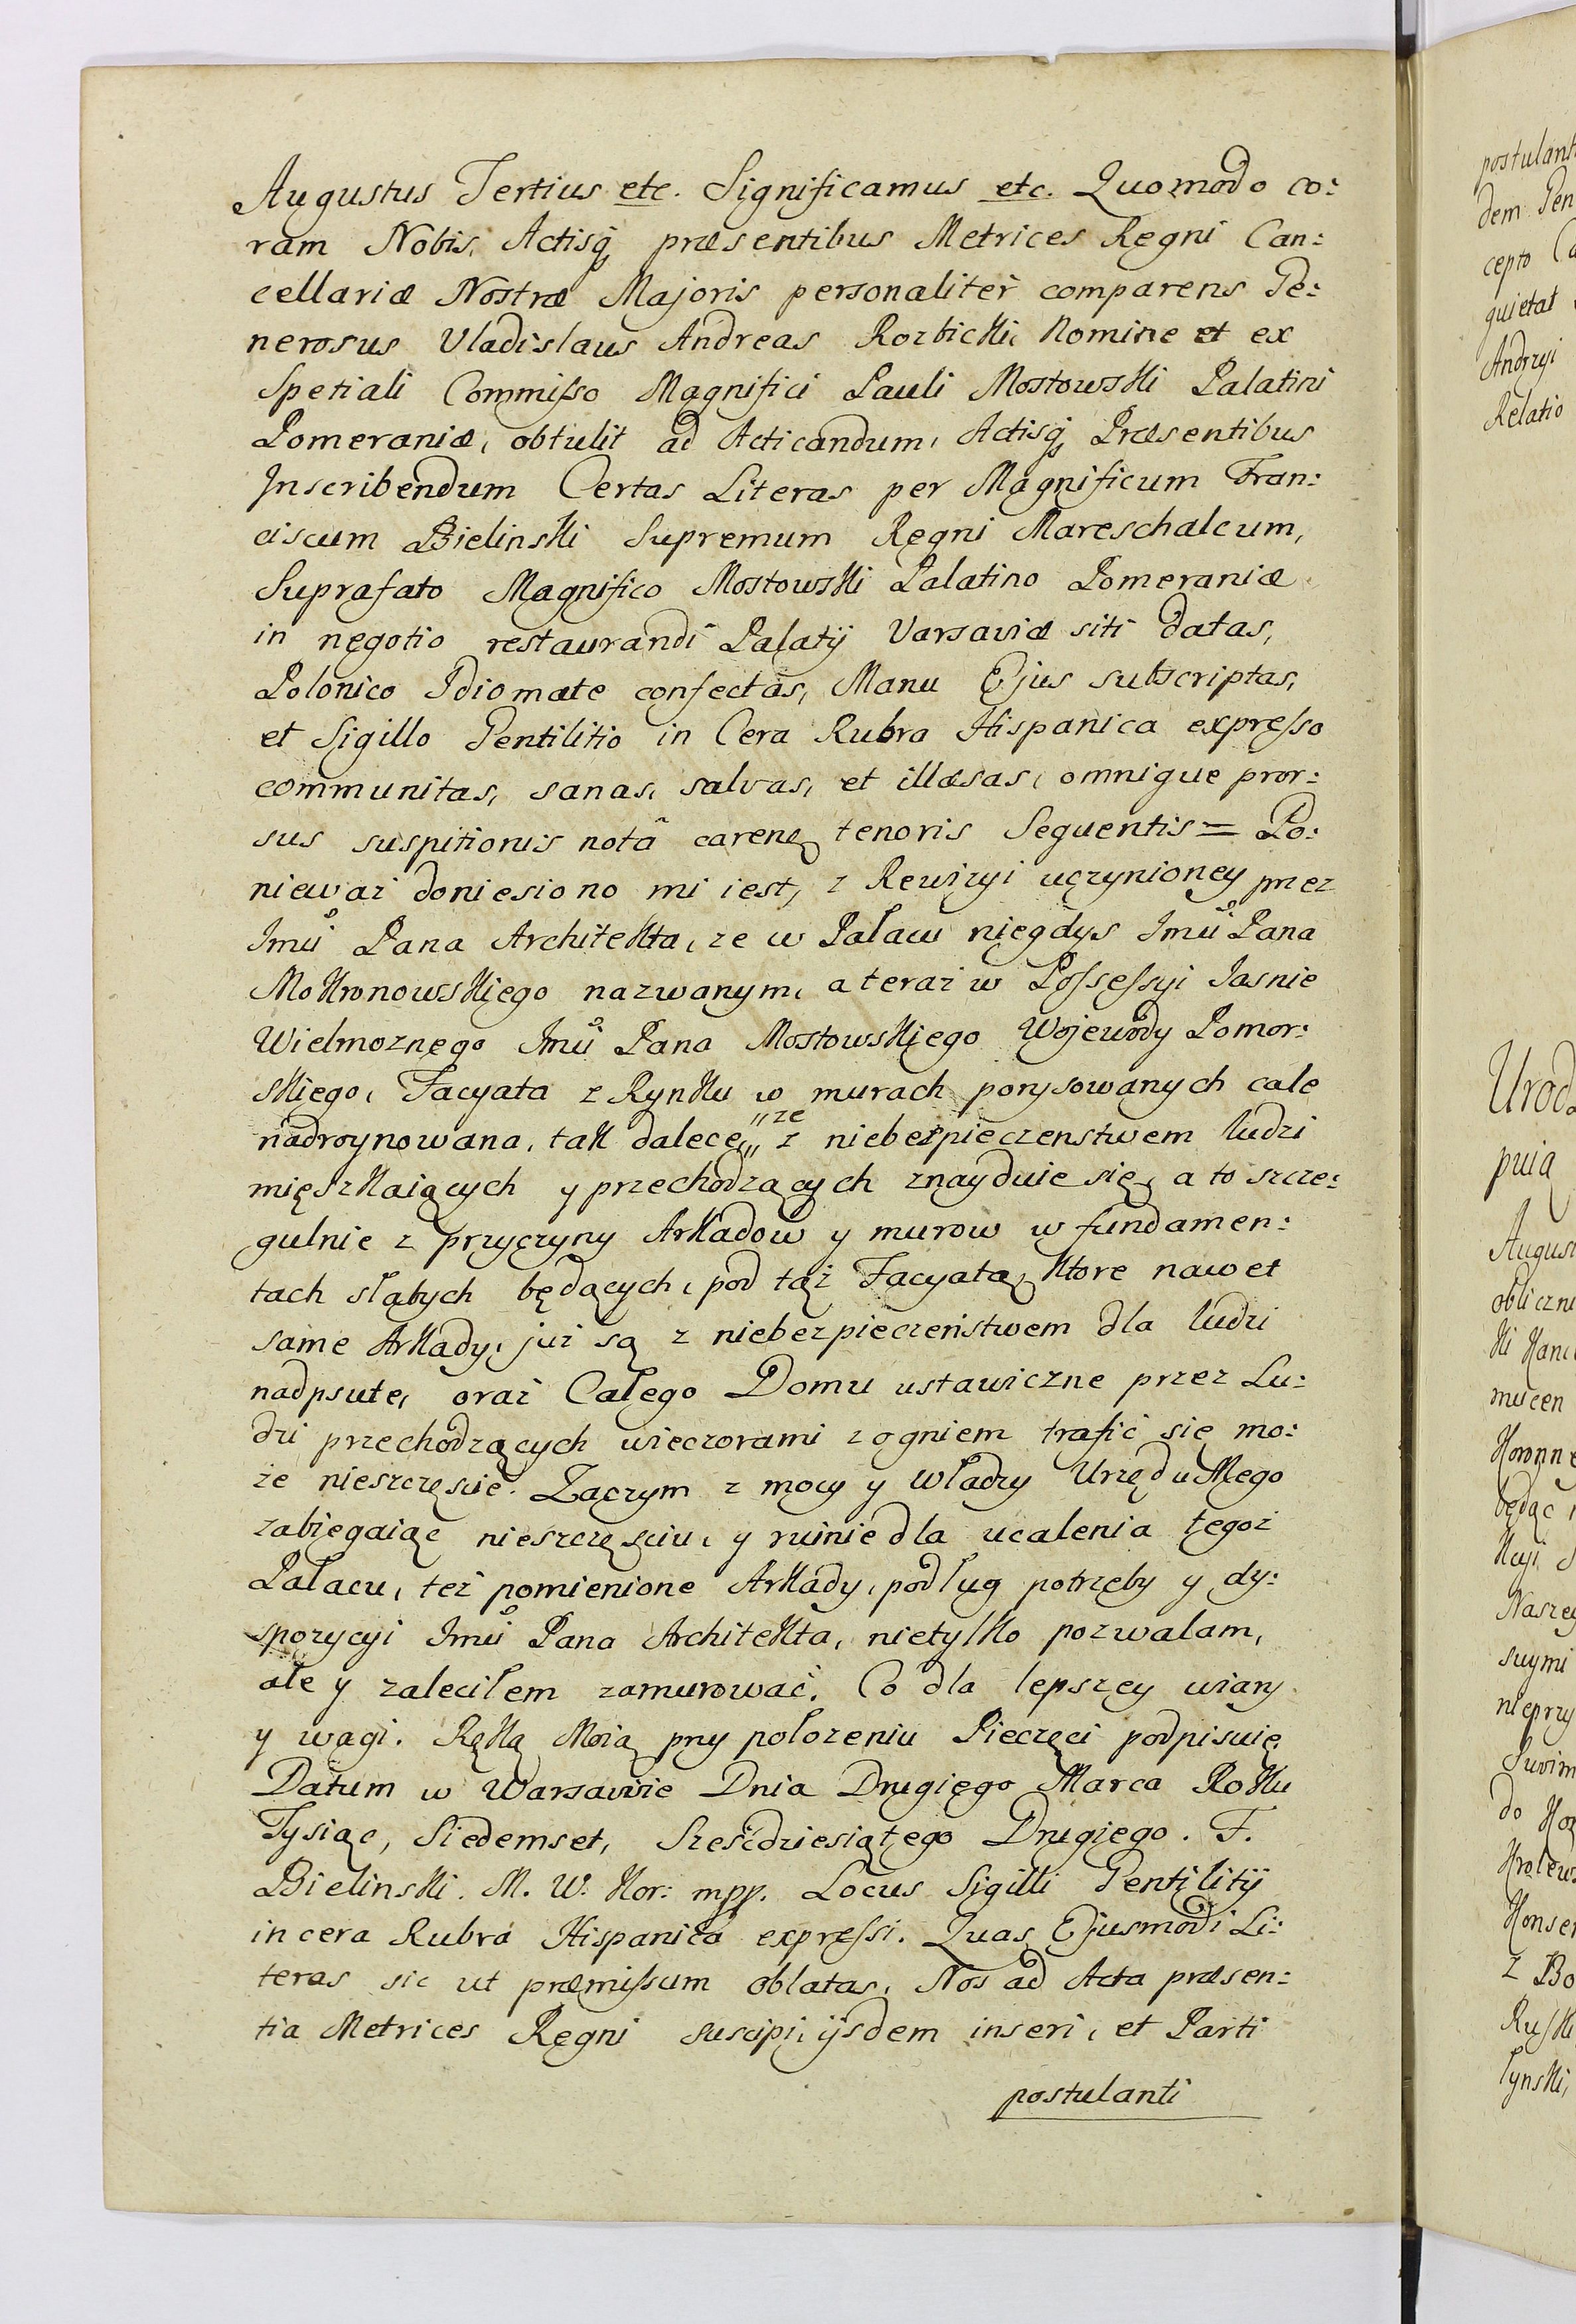 Augustus Tertius etc. Significamus etc. Quomodo co:
ram Nobis, Actisq́ præsentibus Metrices Regni Can:
cellariæ Nostræ Majoris personaliter comparens Ge:
nerosus Vladislaus Andreas Rozbicki, Nomine et ex
Spetiali Commisso Magnifici Pauli Mostowski Palatini
Pomeraniæ, obtulit ad Acticandum, Actisq́ Præsentibus
Inscribendum Certas Literas per Magnificum Fran:
ciscum Bielinski Supremum Regni Mareschalcum,
Suprafato Magnifico Mostowski Palatino Pomeraniæ
in negotio restaurandi Palatij Varsaviæ siti datas,
Polonico Idiomate confectas, Manu Ejus subscriptas,
et Sigillo Gentilitio in Cera Rubra Hispanica expresso
communitas, sanas, salvas, et illæsas, omnique pror:
sus suspitionis notâ careñ tenoris Sequentis = Po:
niewaz doniesiono mi iest, z Rewizyi uczynioney przez
Jmći Pana Architekta, ze w Pałacu niegdys Jmći Pana
Mokronowskiego nazwanym, a teraz w Possessyi Jasnie
Wielmoznego Jmći Pana Mostowskiego Wojewody Pomor:
skiego, Facyata z Rynku w murach porysowanych cale
nadroynowana, tak dalece, ze z niebezpieczenstwem ludzi
mięszkaiących y przechodzących znayduie się, a to szcze:
gulnie z przyczyny Arkadow y murow w fundamen:
tach słabych będących, pod tąż Facyatą, ktore nawet
same Arkady, już są z niebezpieczeństwem dla ludzi
nadpsute, oraż Całego Domu ustawiczne przez Lu:
dzi przechodzących wieczorami z ogniem trafić się mo:
że nieszczęscie. Zaczym z mocy y władzy Urzędu Mego
zabiegaiąc nieszczęsciu, y ruinie dla ucalenia tegoż
Pałacu, też pomienione Arkady, podług potrzeby y dy:
spozycyi Jmći Pana Architekta, nietylko pozwalam,
ale y zaleciłem zamurować. Co dla lepszey wiary
y wagi. Ręką Moią przy położeniu Pieczęci podpisuię.
Datum w Warsawie Dnia Drugiego Marca Roku
Tysiąc, Siedemset, Sześćdziesiątego Drugiego. F.
Bielinski. M. W. Kor: mpp. Locus Sigilli Gentilitij
in cera Rubra Hispanica expressi. Quas Ejusmodi Li:
teras sic ut præmissum oblatas, Nos ad Acta præsen:
tia Metrices Regni suscipi, ijsdem inseri, et Parti
postulanti
postulant
dem Gen
cepto Ca
quietat
Andrzyi
Relatio
Urodz
puią
August
obliczni
ki Kanc
mucen
Koronne
będąc
kcyi
Naszey
suymi
nieprzy
Suvim
do Kor
Krolews
Konser
z Bo
Ruski
lynski,